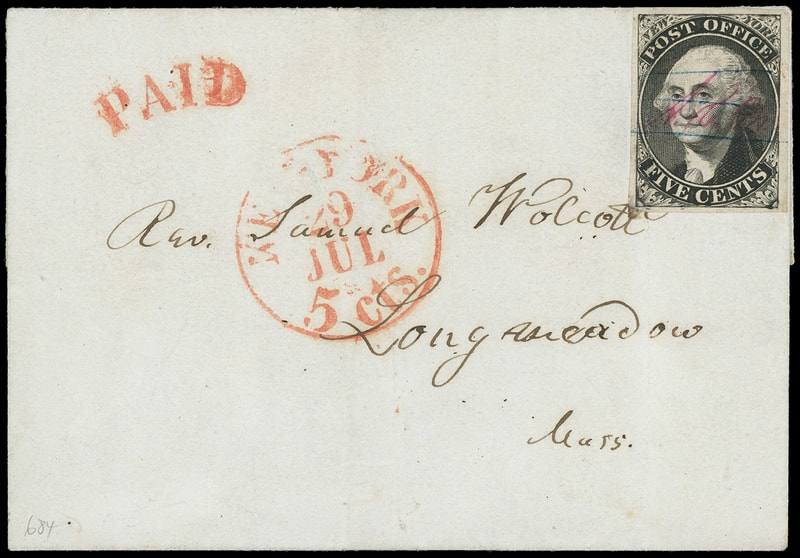 PAID
NEW YORK
POST OFFICE
FIVE CENTS
NEW-YORK
29
JUL
5 cts.
Rev. Samuel Wolcott
Longmeadow
Mass.
684